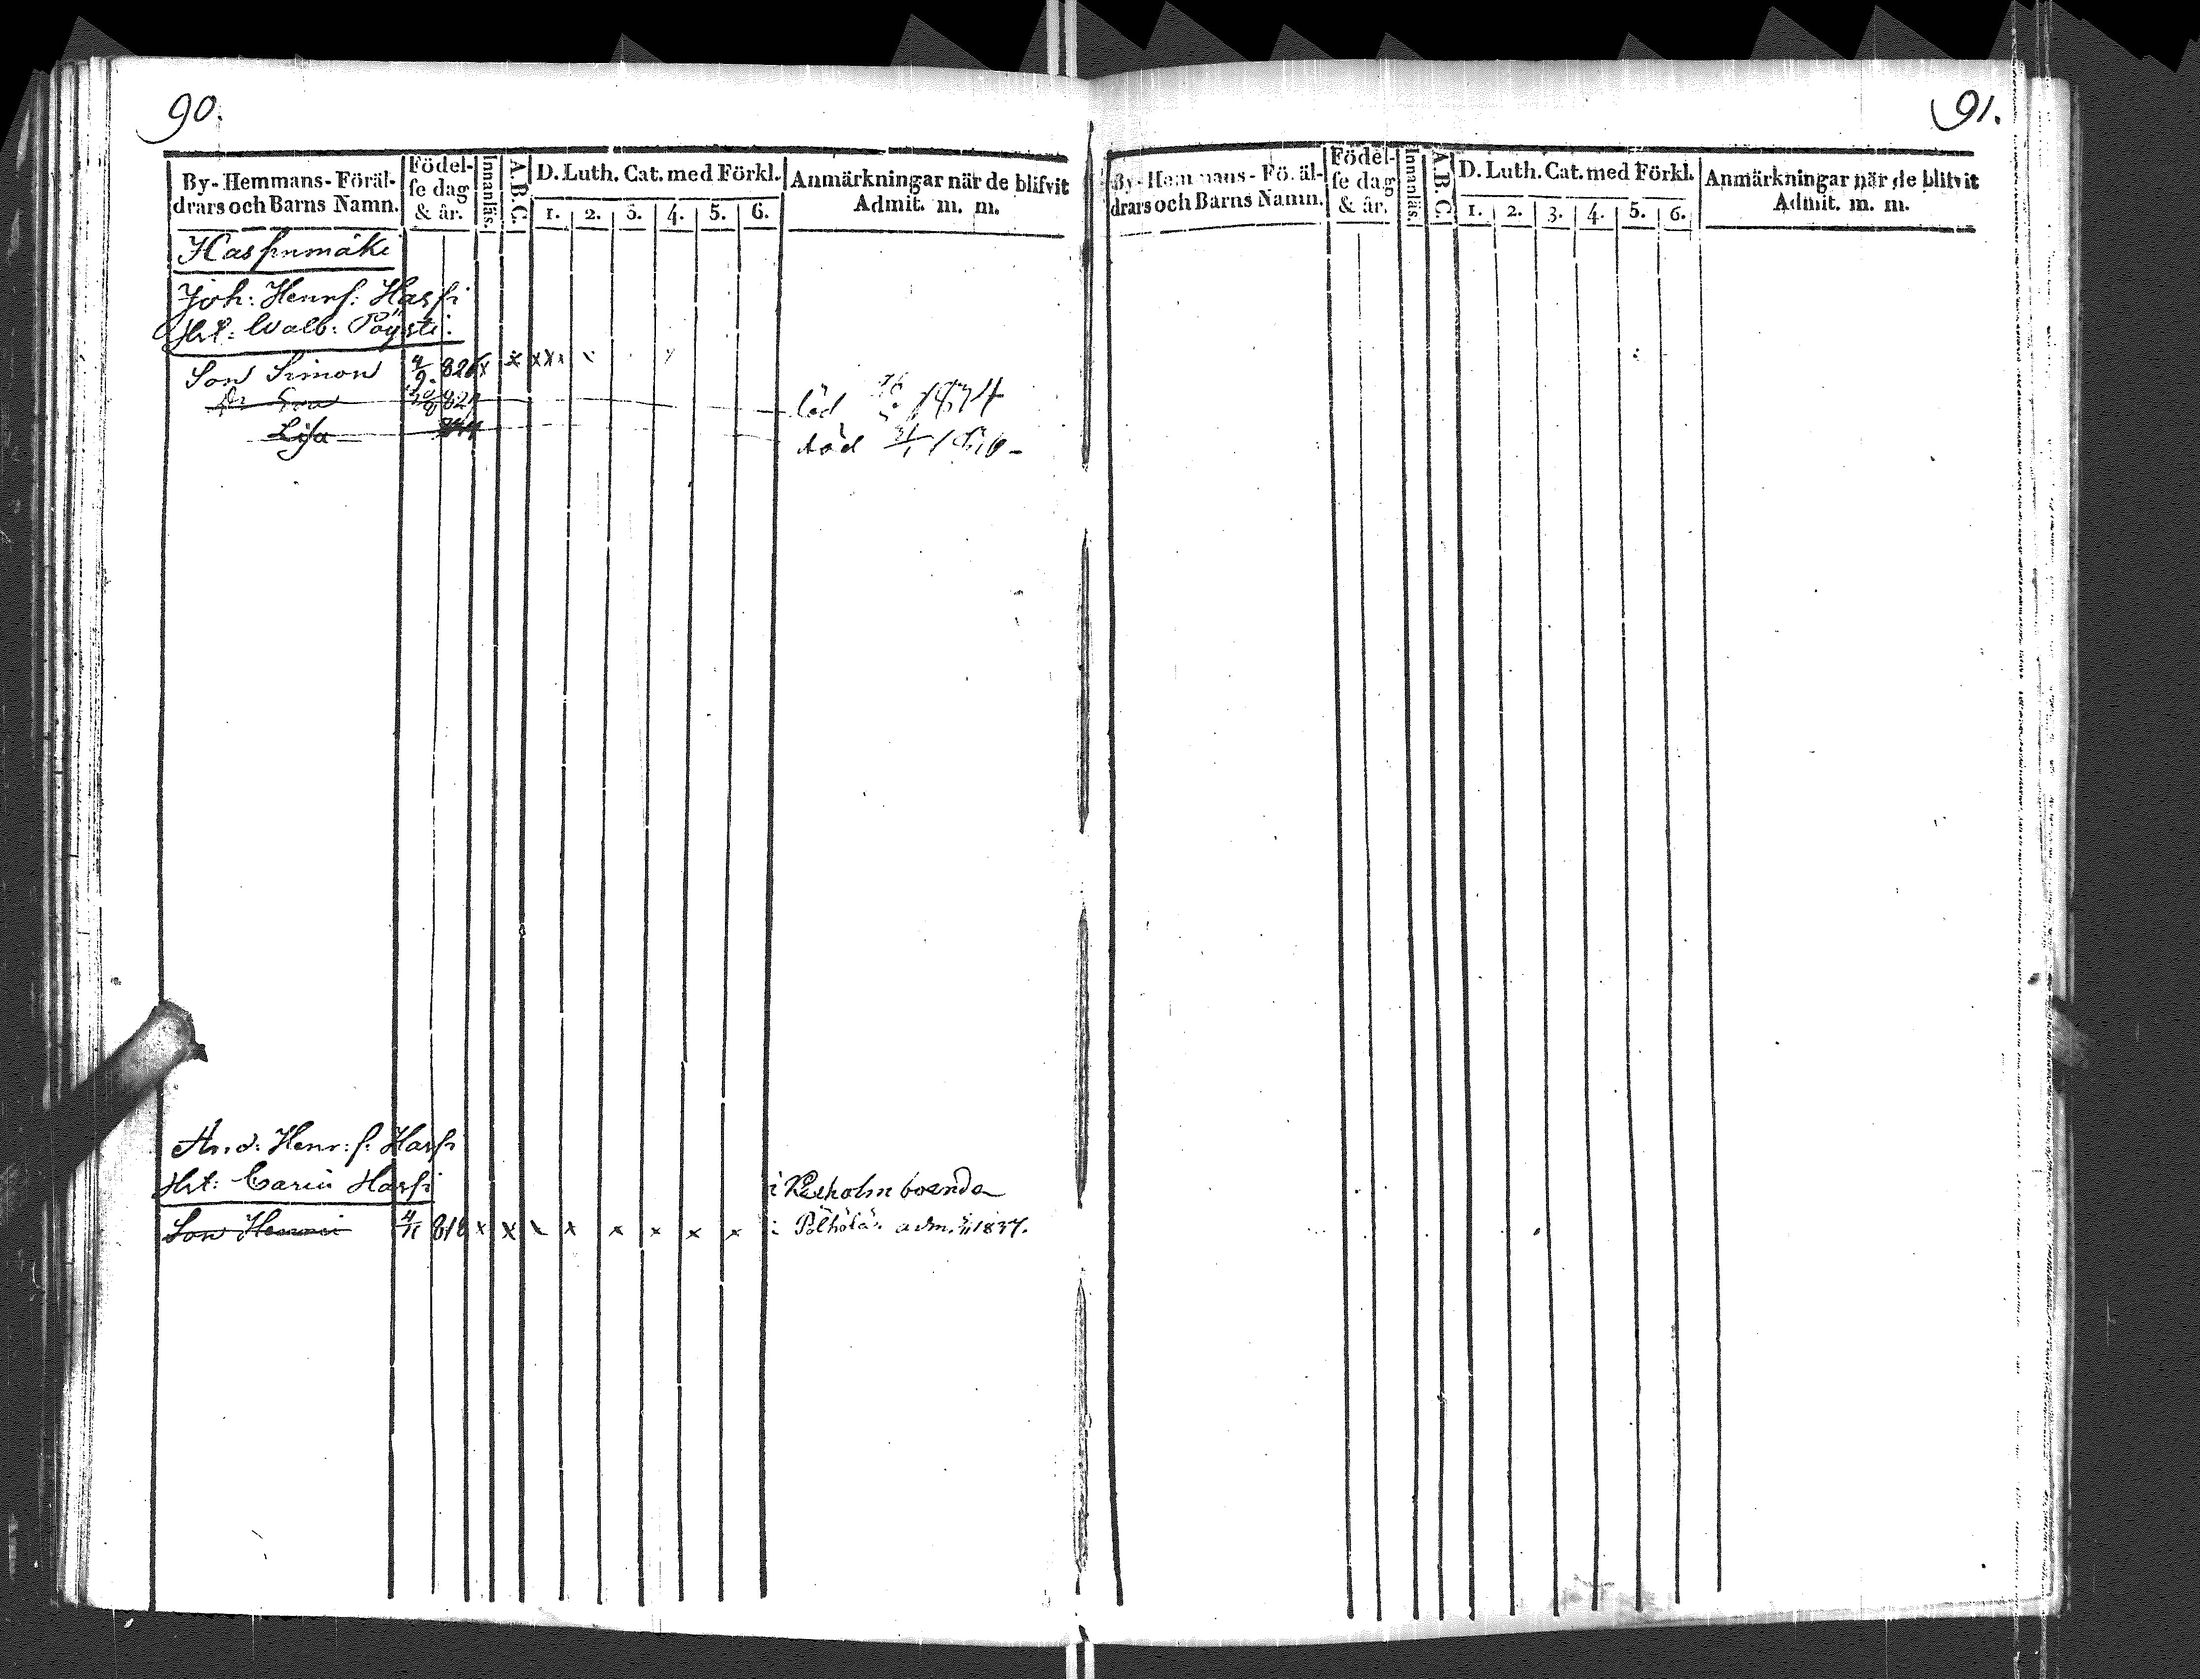 90.
By-Hemmans-Föräl-
drars och Barns Namn.
Födel-
se dag
& år.
Innanläs.
A.B.C.
D. Luth. Cat. med Förkl.
1. 2. 3. 4. 5. 6.
Anmärkningar när de blifvit
Admit. m. m.
Joh: Henr s: Hasfi
Hst: Walb: Pöysti.
Son Simon 4/9 826 x x xxx
Lisa
död
And: Henr: s: Hasfi
Hst: Carin Hasfi i Kexholm boende
Son Henric 4/11 818 x x x x x x x x adm. 1837.
91.
By-Hemmans-Föräl-
drars och Barns Namn.
Födel-
se dag
& år.
Innanläs.
A.B.C.
D. Luth. Cat. med Förkl.
1. 2. 3. 4. 5. 6.
Anmärkningar när de blifvit
Admit. m. m.